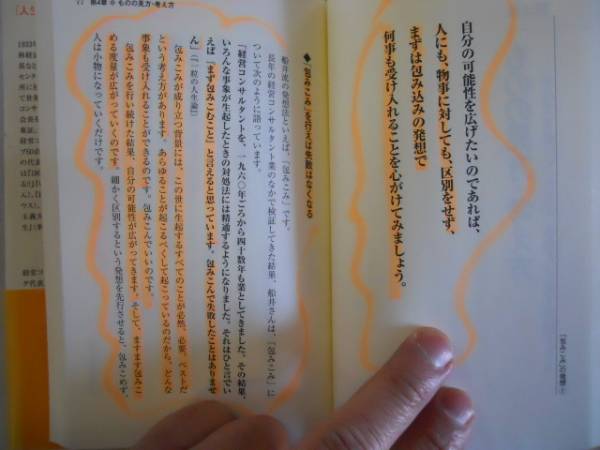 自分の可能性を広げたいのであれば、
人にも、物事に対しても、区別をせず、
まずは包み込みの発想で
何事も受け入れることを心がけてみましょう。
「包みこみ」の発想
77 第4章 ものの見方・考え方
◆「包みこみ」を行えば失敗はなくなる
船井流の発想法といえば、「包みこみ」です。
長年の経営コンサルタント業のなかで検証してきた結果、船井さんは、「包みこみ」に
ついて次のように語っています。
「経営コンサルタントを、一九六〇年ごろから四十数年も業としてきました。その結果、
いろんな事象が生起したときの対処法には精通するようになりました。それはひと言でい
えば「まず包みこむこと」と言えると思っています。包みこんで失敗したことはありませ
ん」(『一粒の人生論』)
包みこみが成り立つ背景には、この世に生起するすべてのことが必然、必要、ベストだ
という考え方があります。あらゆることが起こるべくして起こっているのだから、どんな
事象も受け入れることができるのです。包みこんでいいのです。
包みこみを行い続けた結果、自分の可能性が広がってきます。そして、ますます包みこ
める度量が広がっていくのです。細かく区別するという発想を先行させると、包みこめず、
人は小物になっていくだけです。